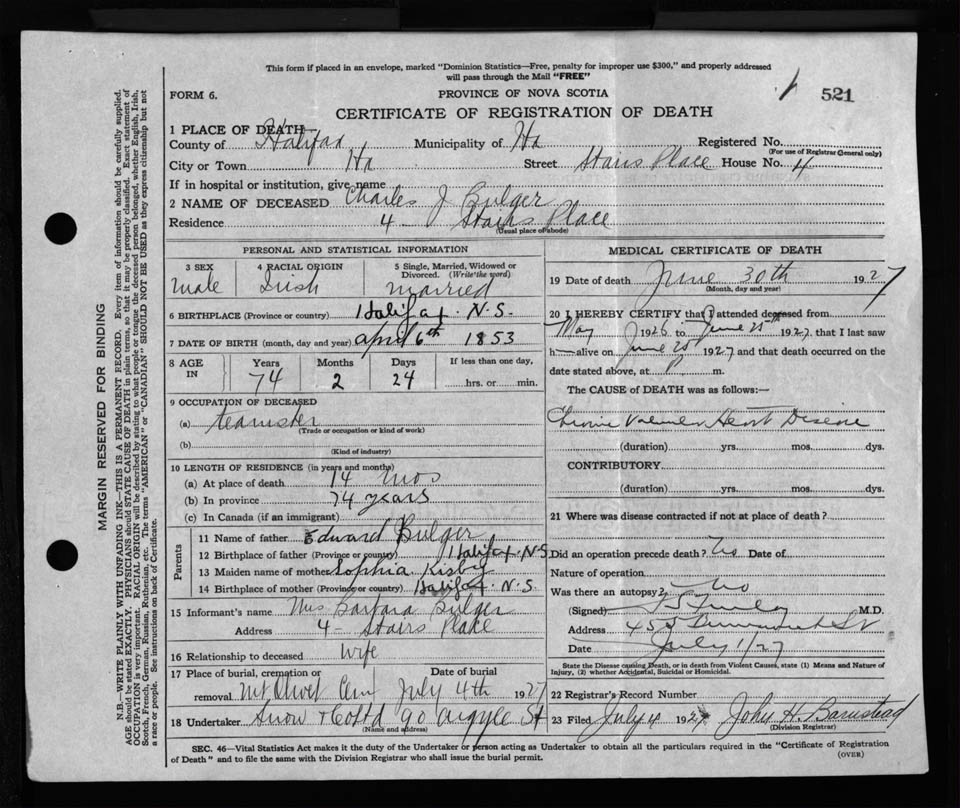 This form if placed in an envelope, marked "Dominion Statistics—Free, penalty for improper use $300," and properly addressed
will pass through the Mail "FREE"
FORM 6. PROVINCE OF NOVA SCOTIA 521
CERTIFICATE OF REGISTRATION OF DEATH
1 PLACE OF DEATH
County of Halifax Municipality of Hx Registered No.
(For use of Registrar General only)
City or Town Hx Street Stairs Place House No. 4
If in hospital or institution, give name
2 NAME OF DECEASED Charles J Bulger
Residence 4 - Stairs Place
(Usual place of abode)
PERSONAL AND STATISTICAL INFORMATION
3 SEX 4 RACIAL ORIGIN 5 Single, Married, Widowed or Divorced. (Write the word)
Male Irish married
6 BIRTHPLACE (Province or country) Halifax. N.S.
7 DATE OF BIRTH (month, day and year) April 6th 1853
8 AGE IN Years Months Days If less than one day,
74 2 24 hrs. or min.
9 OCCUPATION OF DECEASED
(a) teamster
(Trade or occupation or kind of work)
(b)
(Kind of industry)
10 LENGTH OF RESIDENCE (in years and months)
(a) At place of death 14 mos
(b) In province 74 years
(c) In Canada (if an immigrant)
Parents
11 Name of father Edward Bulger
12 Birthplace of father (Province or country) Halifax. N.S.
13 Maiden name of mother Sophia Kisby
14 Birthplace of mother (Province or country) Halifax. N.S.
15 Informant's name Mrs Barbara Bulger
Address 4 - Stairs Place
16 Relationship to deceased Wife
17 Place of burial, cremation or removal Date of burial
Mt Olivet Cem July 4th 1927
18 Undertaker Snow & Co Ltd 90 Argyle St
(Name and address)
MEDICAL CERTIFICATE OF DEATH
19 Date of death June 30th 1927
(Month, day and year)
20 I HEREBY CERTIFY that I attended deceased from
May 1926 to June 25th 1927, that I last saw
h— alive on June 25th 1927 and that death occurred on the
date stated above, at P m.
The CAUSE of DEATH was as follows:—
Chronic Valvular Heart Disease
(duration) yrs. mos. dys.
CONTRIBUTORY
(duration) yrs. mos. dys.
21 Where was disease contracted if not at place of death?
Did an operation precede death? No Date of
Nature of operation
Was there an autopsy? No
(Signed) M.D.
Address 455 St
Date July 1/27
State the Disease causing Death, or in death from Violent Causes, state (1) Means and Nature of
Injury, (2) whether Accidental, Suicidal or Homicidal.
22 Registrar's Record Number
23 Filed July 4 1927 John H. Barnstead
(Division Registrar)
SEC. 46—Vital Statistics Act makes it the duty of the Undertaker or person acting as Undertaker to obtain all the particulars required in the "Certificate of Registration
of Death" and to file the same with the Division Registrar who shall issue the burial permit.
(OVER)
MARGIN RESERVED FOR BINDING
N.B.—WRITE PLAINLY WITH UNFADING INK—THIS IS A PERMANENT RECORD. Every item of information should be carefully supplied.
AGE should be stated EXACTLY. PHYSICIANS should STATE CAUSE OF DEATH in plain terms, so that it may be properly classified. Exact statement of
OCCUPATION is very important. RACIAL ORIGIN will be described by stating to what people or tongue the deceased person belonged, whether English, Irish,
Scotch, French, German, Russian, Ruthenian, etc. The terms "AMERICAN" or "CANADIAN" SHOULD NOT BE USED as they express citizenship but not
a race or people. See instructions on back of Certificate.